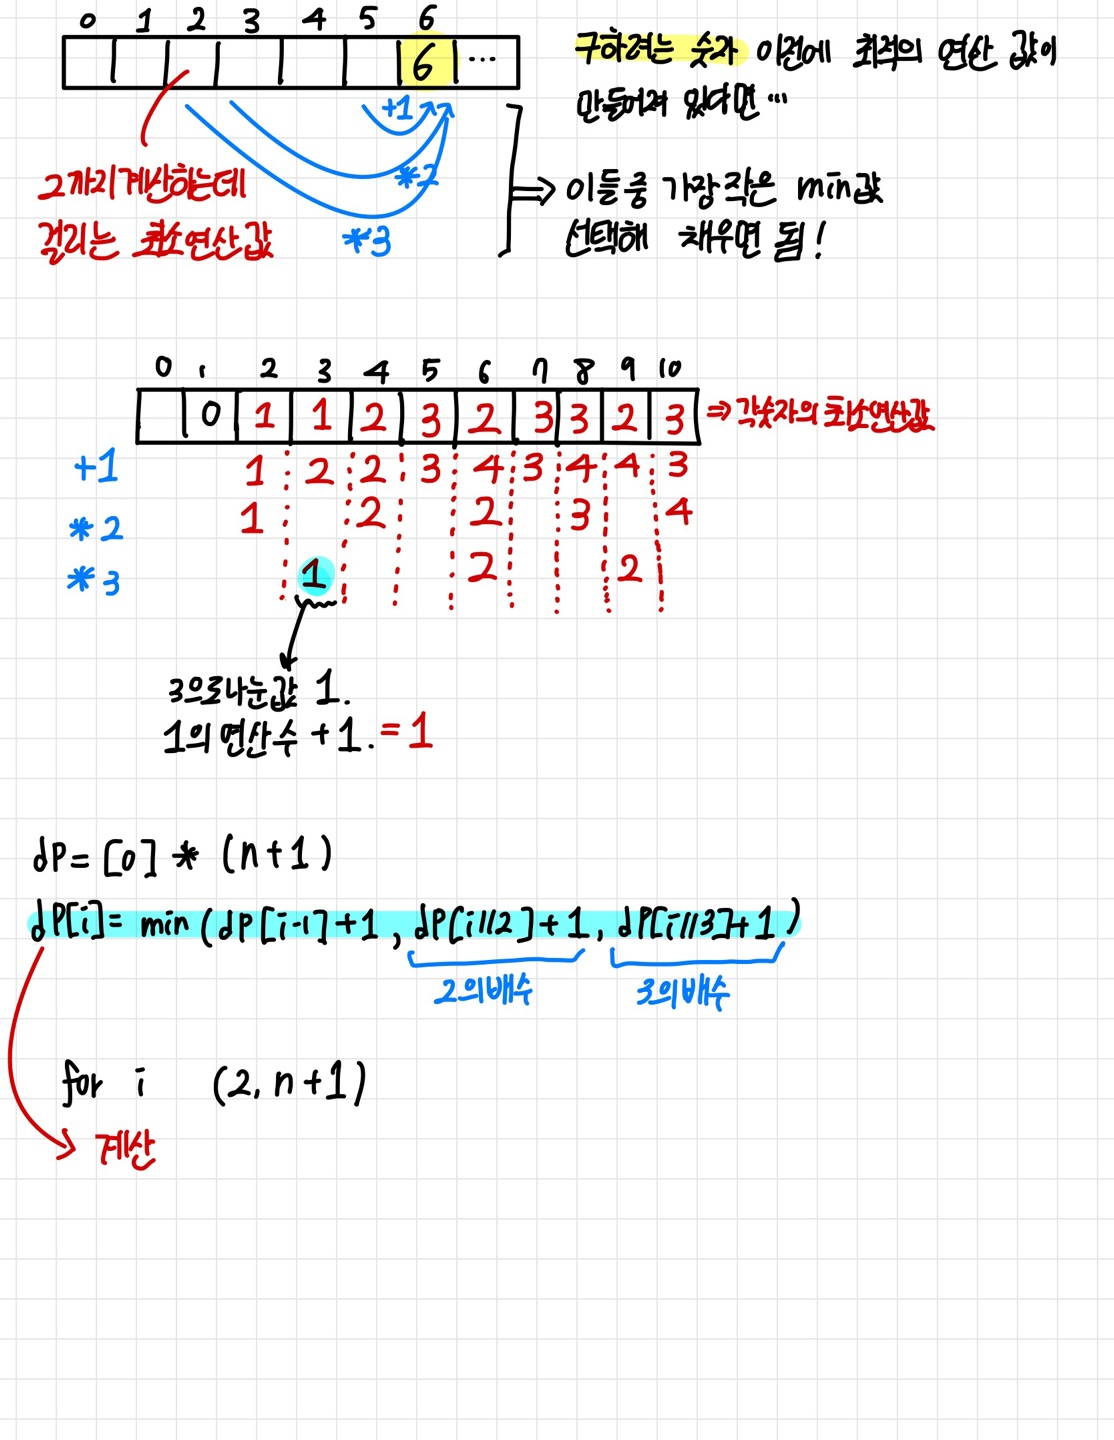 0 1 2 3 4 5 6
6 ...
구하려는 숫자 이전에 최적의 연산 값이
만들어져 있다면 ...
+1
*2
*3
2까지 계산하는데
걸리는 최소연산값
⇒ 이들중 가장 작은 min값
선택해 채우면 됨!
0 1 2 3 4 5 6 7 8 9 10
0 1 1 2 3 2 3 3 2 3 ⇒ 각숫자의 최소연산값
+1 1 2 2 3 4 3 4 4 3
*2 1 2 2 3 4
*3 1 2 2
3으로나눈값 1.
1의 연산수 +1. = 1
dP = [0] * (n+1)
dP[i] = min (dP[i-1]+1, dP[i//2]+1, dP[i//3]+1)
2의배수 3의배수
for i (2, n+1)
계산